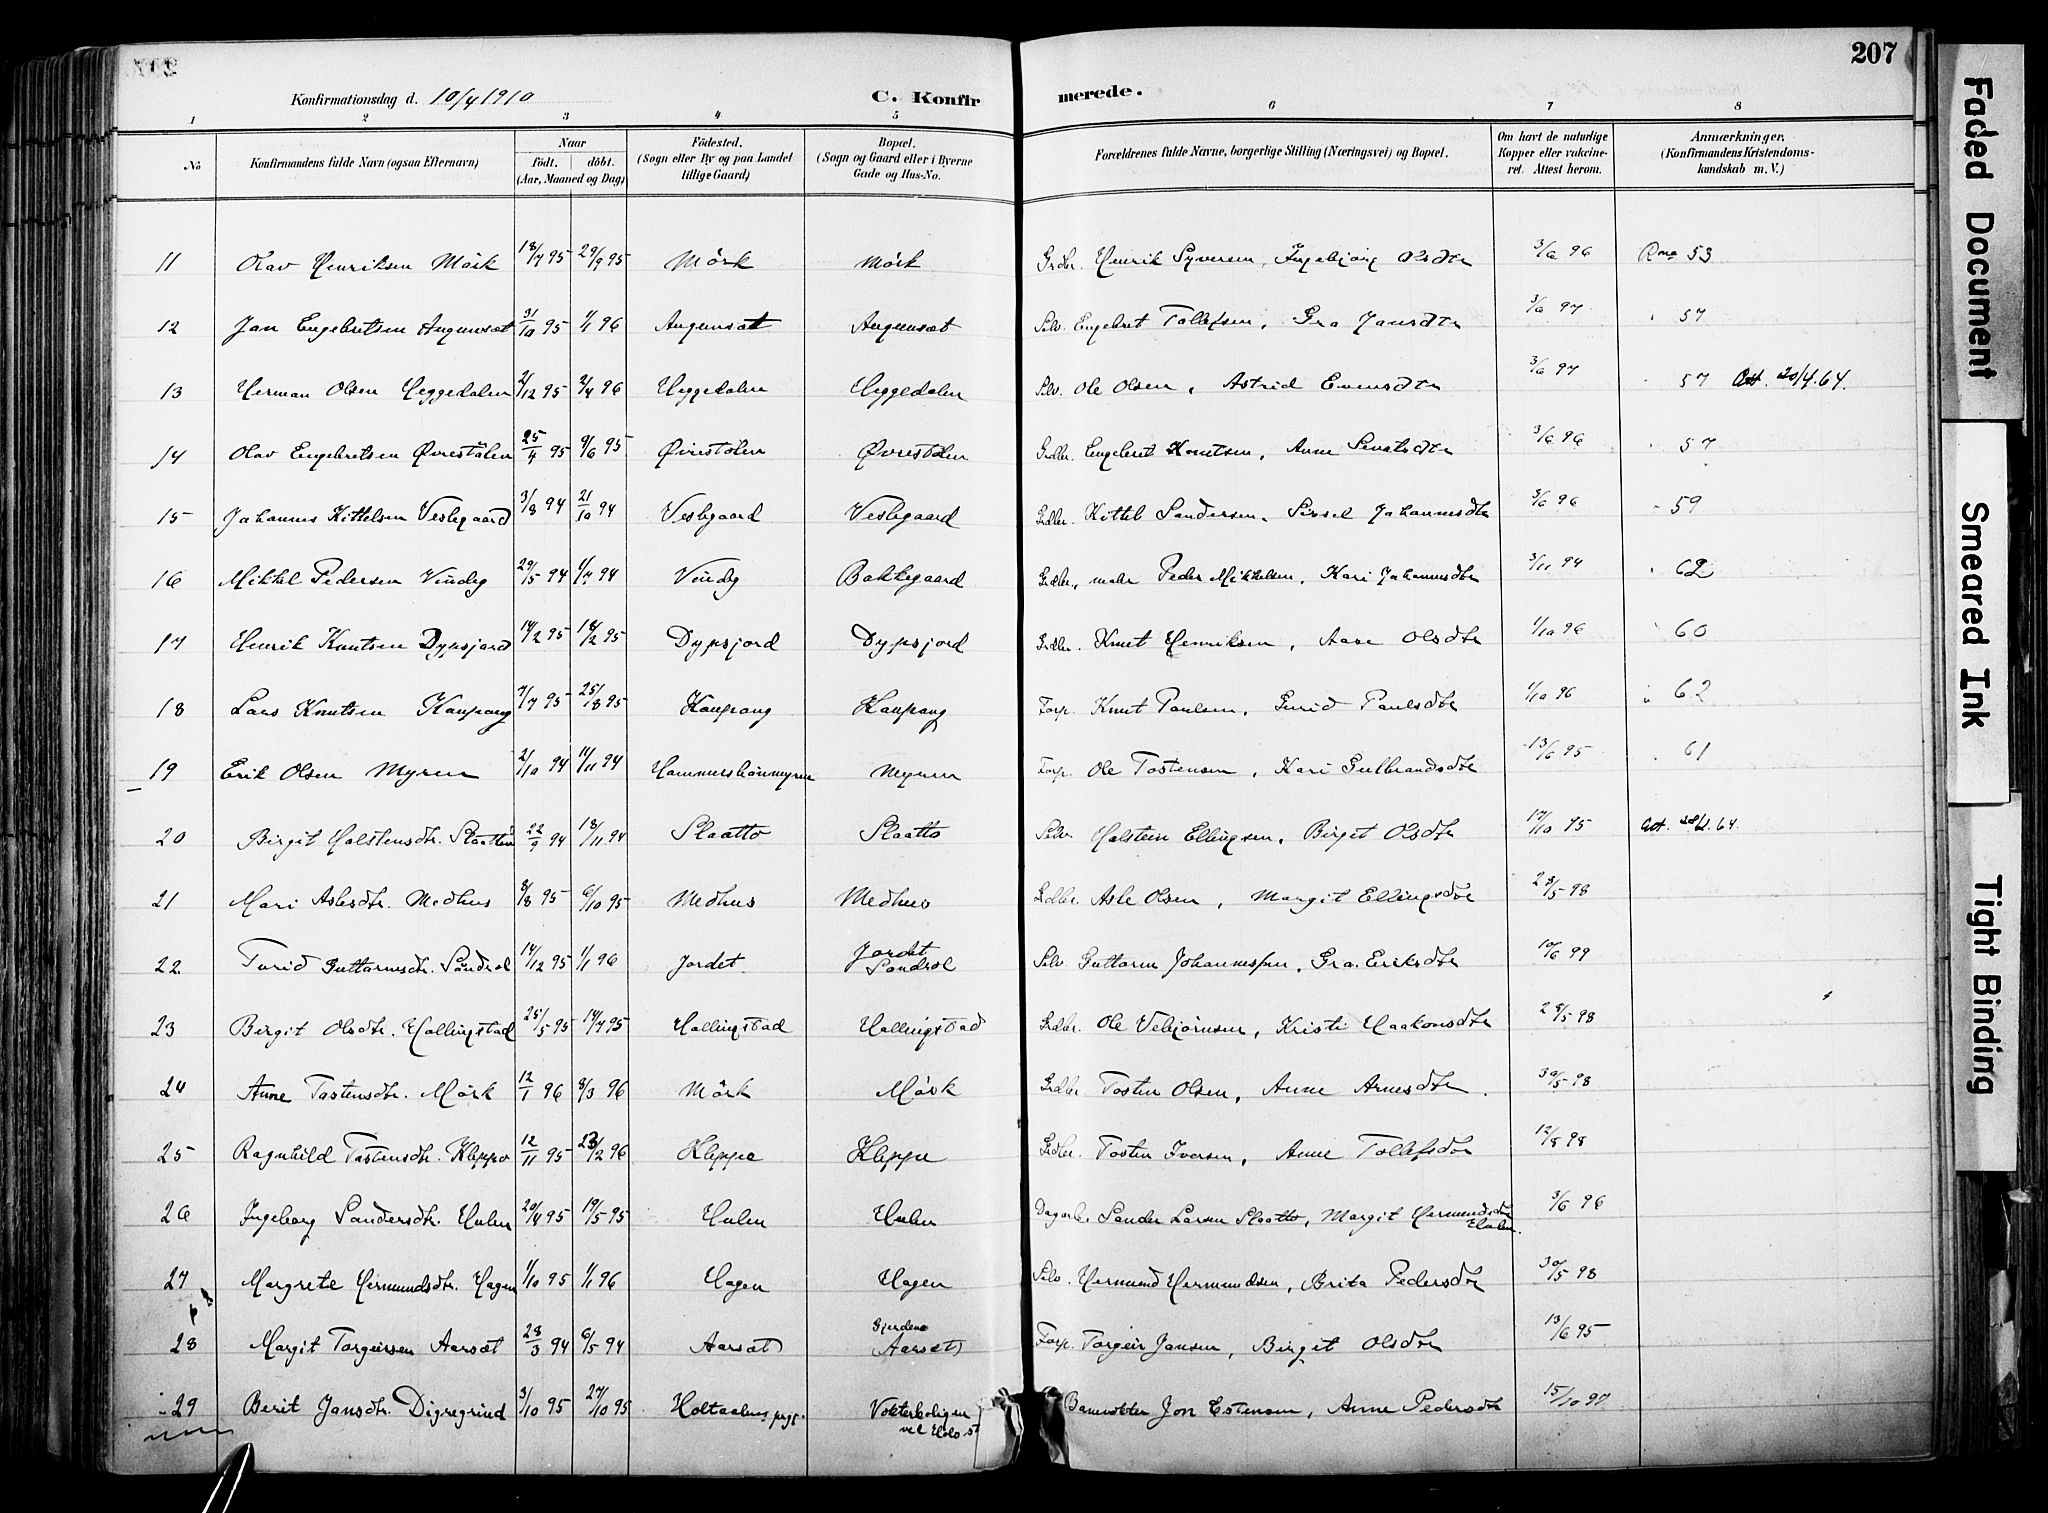 207
Konfirmationsdag d. 10/4 1910
C. Konfirmerede.
1 2 3 4 5 6 7 8
No
Konfirmandens fulde Navn (ogsaa Efternavn)
Naar
födt. döbt.
(Aar, Maaned og Dag)
Födested.
(Sogn eller By og paa Landet
tillige Gaard)
Bopæl.
(Sogn og Gaard eller i Byerne
Gade og Hus-No.
Forældrenes fulde Navne, borgerlige Stilling (Næringsvei) og Bopæl.
Om havt de naturlige
Kopper eller vakcine-
ret. Attest herom.
Anmærkninger.
(Konfirmandens Kristendoms-
kundskab m. V.)
11 Olav Henriksen Mörk 18/7 95 29/9 95 Mörk Mörk Grdbr. Henrik Syversen, Ingebjörg Olsdtr 3/6 96 53
12 Jan Engebretsen Augunsæt 31/10 95 1/1 96 Augunsæt Augunsæt Selv. Engebret Tollefsen, Gra Jansdtr 3/6 97 " 57
13 Herman Olsen Heggedalen 2/12 95 2/4 96 Heggedalen Heggedalen Selv. Ole Olsen, Astrid Evensdtr 3/6 97 " 57 Att. 20/4.64.
14 Olav Engebretsen Øvrestölen 25/4 95 9/6 95 Øvrestölen Øvrestölen Grdbr. Engebret Knutsen, Anne 3/6 96 " 57
15 Johannes Kittelsen Veslegaard 3/8 94 21/10 94 Veslegaard Veslegaard Grdbr. Kittel Sandersen, Sissel Johannesdtr 3/6 96 " 59
16 Mikkel Pedersen Vindeg 29/5 94 1/7 94 Vindeg Bakkegaard Grdbr., maler Peder Mikkelsen, Kari Johannesdtr 3/11 94 " 62
17 Henrik Knutsen Dypsjord 14/2 95 14/2 95 Dypsjord Dypsjord Grdbr. Knut Henriksen, Aase Olsdtr 1/10 96 " 60
18 Lars Knutsen Kaupang 7/7 95 25/8 95 Kaupang Kaupang Forp. Knut Paulsen, Gunid Paulsdtr 1/10 96 " 62
19 Erik Olsen Myren 2/10 94 11/11 94 Hammersbönmyren Myren Forp. Ole Tostensen, Kari Gulbrandsdtr 13/6 95 " 61
20 Birgit Holstensdtr. Slaatten 22/9 94 18/11 94 Slaatto Slaatto Selv Holstein Ellingsen, Birgit Olsdtr 17/10 95 Att. 64.
21 Mari Aslesdtr. Medhus 8/8 95 6/10 95 Medhus Medhus Grdbr. Asle Olsen, Margit Ellingsdtr 28/5 98
22 Turid Guttormsdr. Söndrol 14/12 95 1/1 96 Jordet Jordet
Sondrol Selv. Guttorm Johannessen, Gra. Eriksdtr 10/6 99
23 Birgit Olsdtr. Hallingstad 25/5 95 14/7 95 Hallingstad Hallingstad Grdbr. Ole Vebjörnsen, Kristi Haakonsdtr 28/5 98
24 Anne Tostensdtr. Mörk 12/1 96 8/3 96 Mörk Mörk Grdbr Tosten Olsen, Anne Arnesdtr. 30/5 98
25 Ragnhild Tostensdtr. Kleppo 12/11 95 23/2 96 Kleppe Kleppe Grdbr. Tosten Iversen, Anne Tollefsdtr 12/8 98
26 Ingeborg Sandersdtr. Hulen 20/4 95 19/5 95 Hulen Hulen Dagarb. Sander Larsen Slaatto, Margit Hermundsdtr
Hulen. 3/6 96
27 Margrete Hermundsdtr. Hagen 1/10 95 1/1 96 Hagen Hagen Selv. Hermund Hermundsen, Brita Pedersdtr 30/5 98
28 Margit Torgeirsen Aarsæt 28/3 94 6/5 94 Aarsæt Gjerdene
Aarsæt Forp. Torgeir Jansen, Birgit Olsdtr 13/6 95
29 Berit Jansdtr. Digregrind 3/10 95 27/10 95 Holtaalens prgj. Vokterboligen
vel st Banevokter Jon Estensen, Anne Pedersdtr 15/10 97
Faded Document
Smeared Ink
Tight Binding